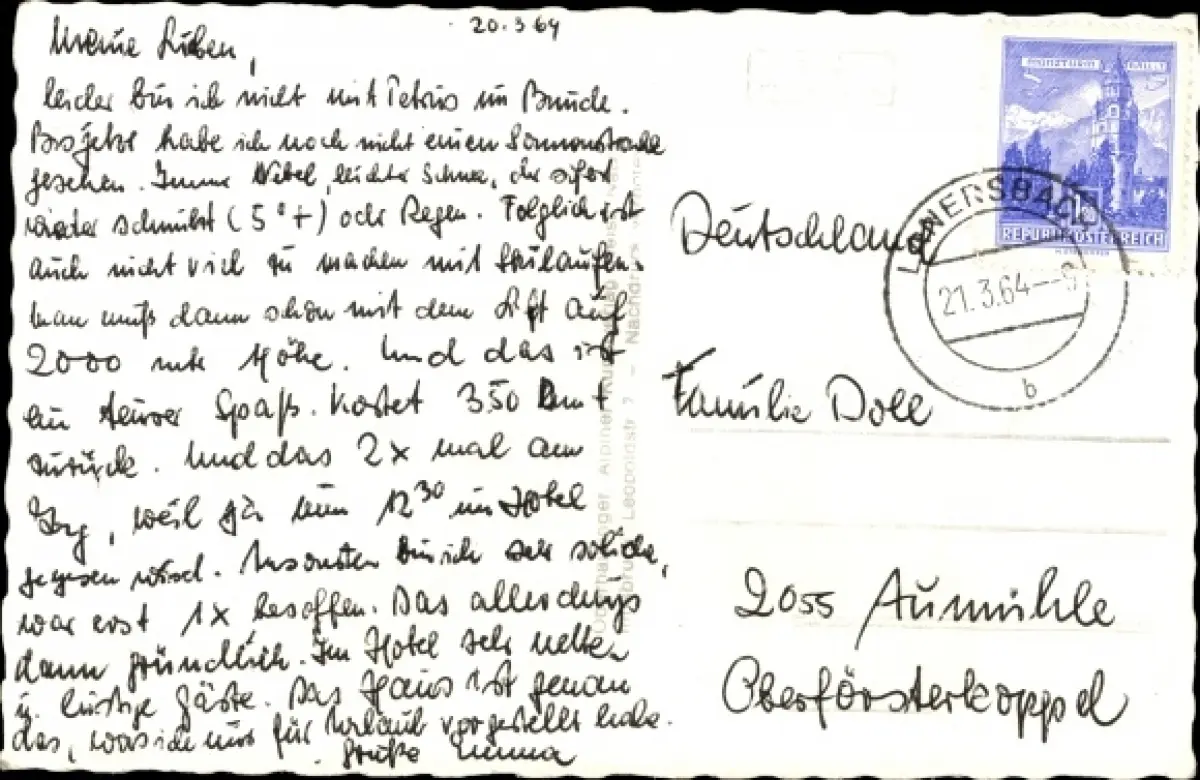 20.3.64
Meine Lieben,
leider bin ich nicht mit Petrus im Bunde.
Bis jetzt habe ich noch nicht einen Sonnenstrahl
gesehen. Immer Nebel, leichter Schnee, der sofort
wieder schmilzt (5°+) oder Regen. Folglich ist
auch nicht viel zu machen mit Skilaufen.
Man muß dann schon mit dem Lift auf
2000 mtr Höhe. Und das ist
ein teurer Spaß. Kostet 3.50 Dm t
zurück. Und das 2x mal am
Tag, weil ja um 12 30 im Hotel
gegessen wird. Ansonsten bin ich sehr solide,
war erst 1x besoffen. Das allerdings
dann gründlich. Im Hotel sehr nette
u. lustige Gäste. Das Haus ist genau
das, was ich mir für Urlaub vorgestellt habe.
Grüße
REPUBLIK ÖSTERREICH
LANERSBACH
21.3.64
b
Deutschland
Familie Doll
2055 Aumühle
Oberförsterkoppel